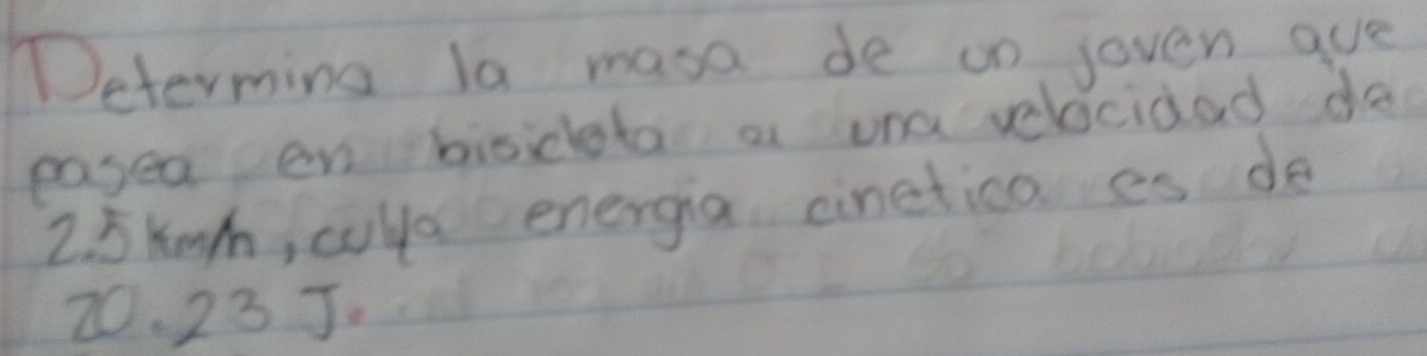 Determina la masa de un joven que
pasea en bisicleta a una velocidad de
2.5 km/h, cuya energia cinetica es de
20.23 J.